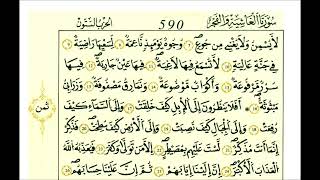 سُورَتَا الغَاشِيَةِ وَالفَجْرِ 590 الحِزْبُ السِّتُّونَ
لَّا يُسْمِنُ وَلَا يُغْنِي مِن جُوعٍ ٧ وُجُوهٌ يَوْمَئِذٍ نَّاعِمَةٌ ٨ لِّسَعْيِهَا رَاضِيَةٌ ٩
فِي جَنَّةٍ عَالِيَةٍ ١٠ لَّا تَسْمَعُ فِيهَا لَاغِيَةً ١١ فِيهَا عَيْنٌ جَارِيَةٌ ١٢ فِيهَا
سُرُرٌ مَّرْفُوعَةٌ ١٣ وَأَكْوَابٌ مَّوْضُوعَةٌ ١٤ وَنَمَارِقُ مَصْفُوفَةٌ ١٥ وَزَرَابِيُّ
مَبْثُوثَةٌ ١٦ أَفَلَا يَنظُرُونَ إِلَى الْإِبِلِ كَيْفَ خُلِقَتْ ١٧ وَإِلَى السَّمَاءِ كَيْفَ
رُفِعَتْ ١٨ وَإِلَى الْجِبَالِ كَيْفَ نُصِبَتْ ١٩ وَإِلَى الْأَرْضِ كَيْفَ سُطِحَتْ ٢٠ فَذَكِّرْ
إِنَّمَا أَنتَ مُذَكِّرٌ ٢١ لَّسْتَ عَلَيْهِم بِمُصَيْطِرٍ ٢٢ إِلَّا مَن تَوَلَّىٰ وَكَفَرَ ٢٣ فَيُعَذِّبُهُ اللَّهُ
الْعَذَابَ الْأَكْبَرَ ٢٤ إِنَّ إِلَيْنَا إِيَابَهُمْ ٢٥ ثُمَّ إِنَّ عَلَيْنَا حِسَابَهُم ٢٦
ثمن